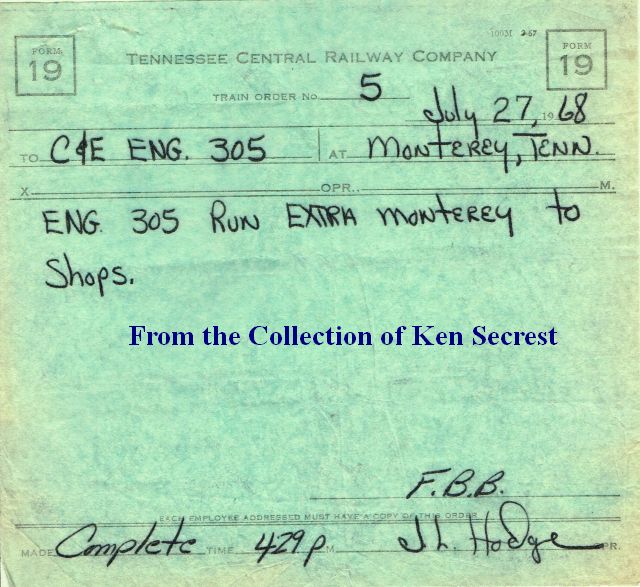 100M 2-67
FORM 19 TENNESSEE CENTRAL RAILWAY COMPANY FORM 19
TRAIN ORDER NO. 5
July 27, 1968
TO C&E ENG. 305 AT MONTEREY, TENN.
X OPR. M.
ENG. 305 RUN EXTRA MONTEREY to
Shops.
From the Collection of Ken Secrest
F.B.B.
EACH EMPLOYEE ADDRESSED MUST HAVE A COPY OF THIS ORDER
MADE Complete TIME 429 P M. J.L. Hodge OPR.